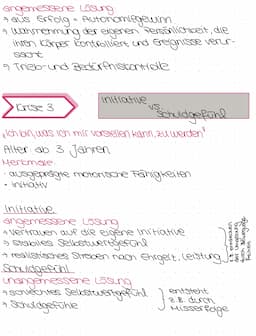 angemessene Lösung
→ aus Erfolg = Autonomiegewinn
→ Wahrnehmung der eigenen Persönlichkeit, die
ihren Körper kontrolliert und Ereignisse verur-
sacht
→ Trieb- und Bedürfniskontrolle
Krise 3
Initiative
vs.
Schuldgefühl
„Ich bin, was ich mir vorstellen kann, zu werden"
Alter: ab 3 Jahren
Merkmale:
- ausgeprägte motorische Fähigkeiten
- initiativ
Initiative
angemessene Lösung
+ Vertrauen auf die eigene Initiative
+ stabiles Selbstwertgefühl
+ realistisches Streben nach Ehrgeiz, Leistung
Schuldgefühl
unangemessene Lösung
+ schlechtes Selbstwertgefühl
+ Schuldgefühle
entsteht
z.B. durch
Misserfolge